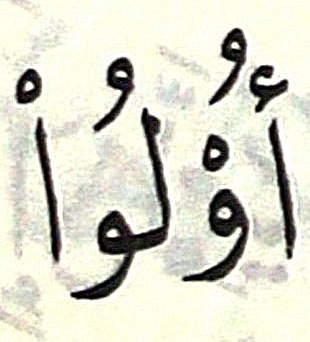 أُوْلُواْ